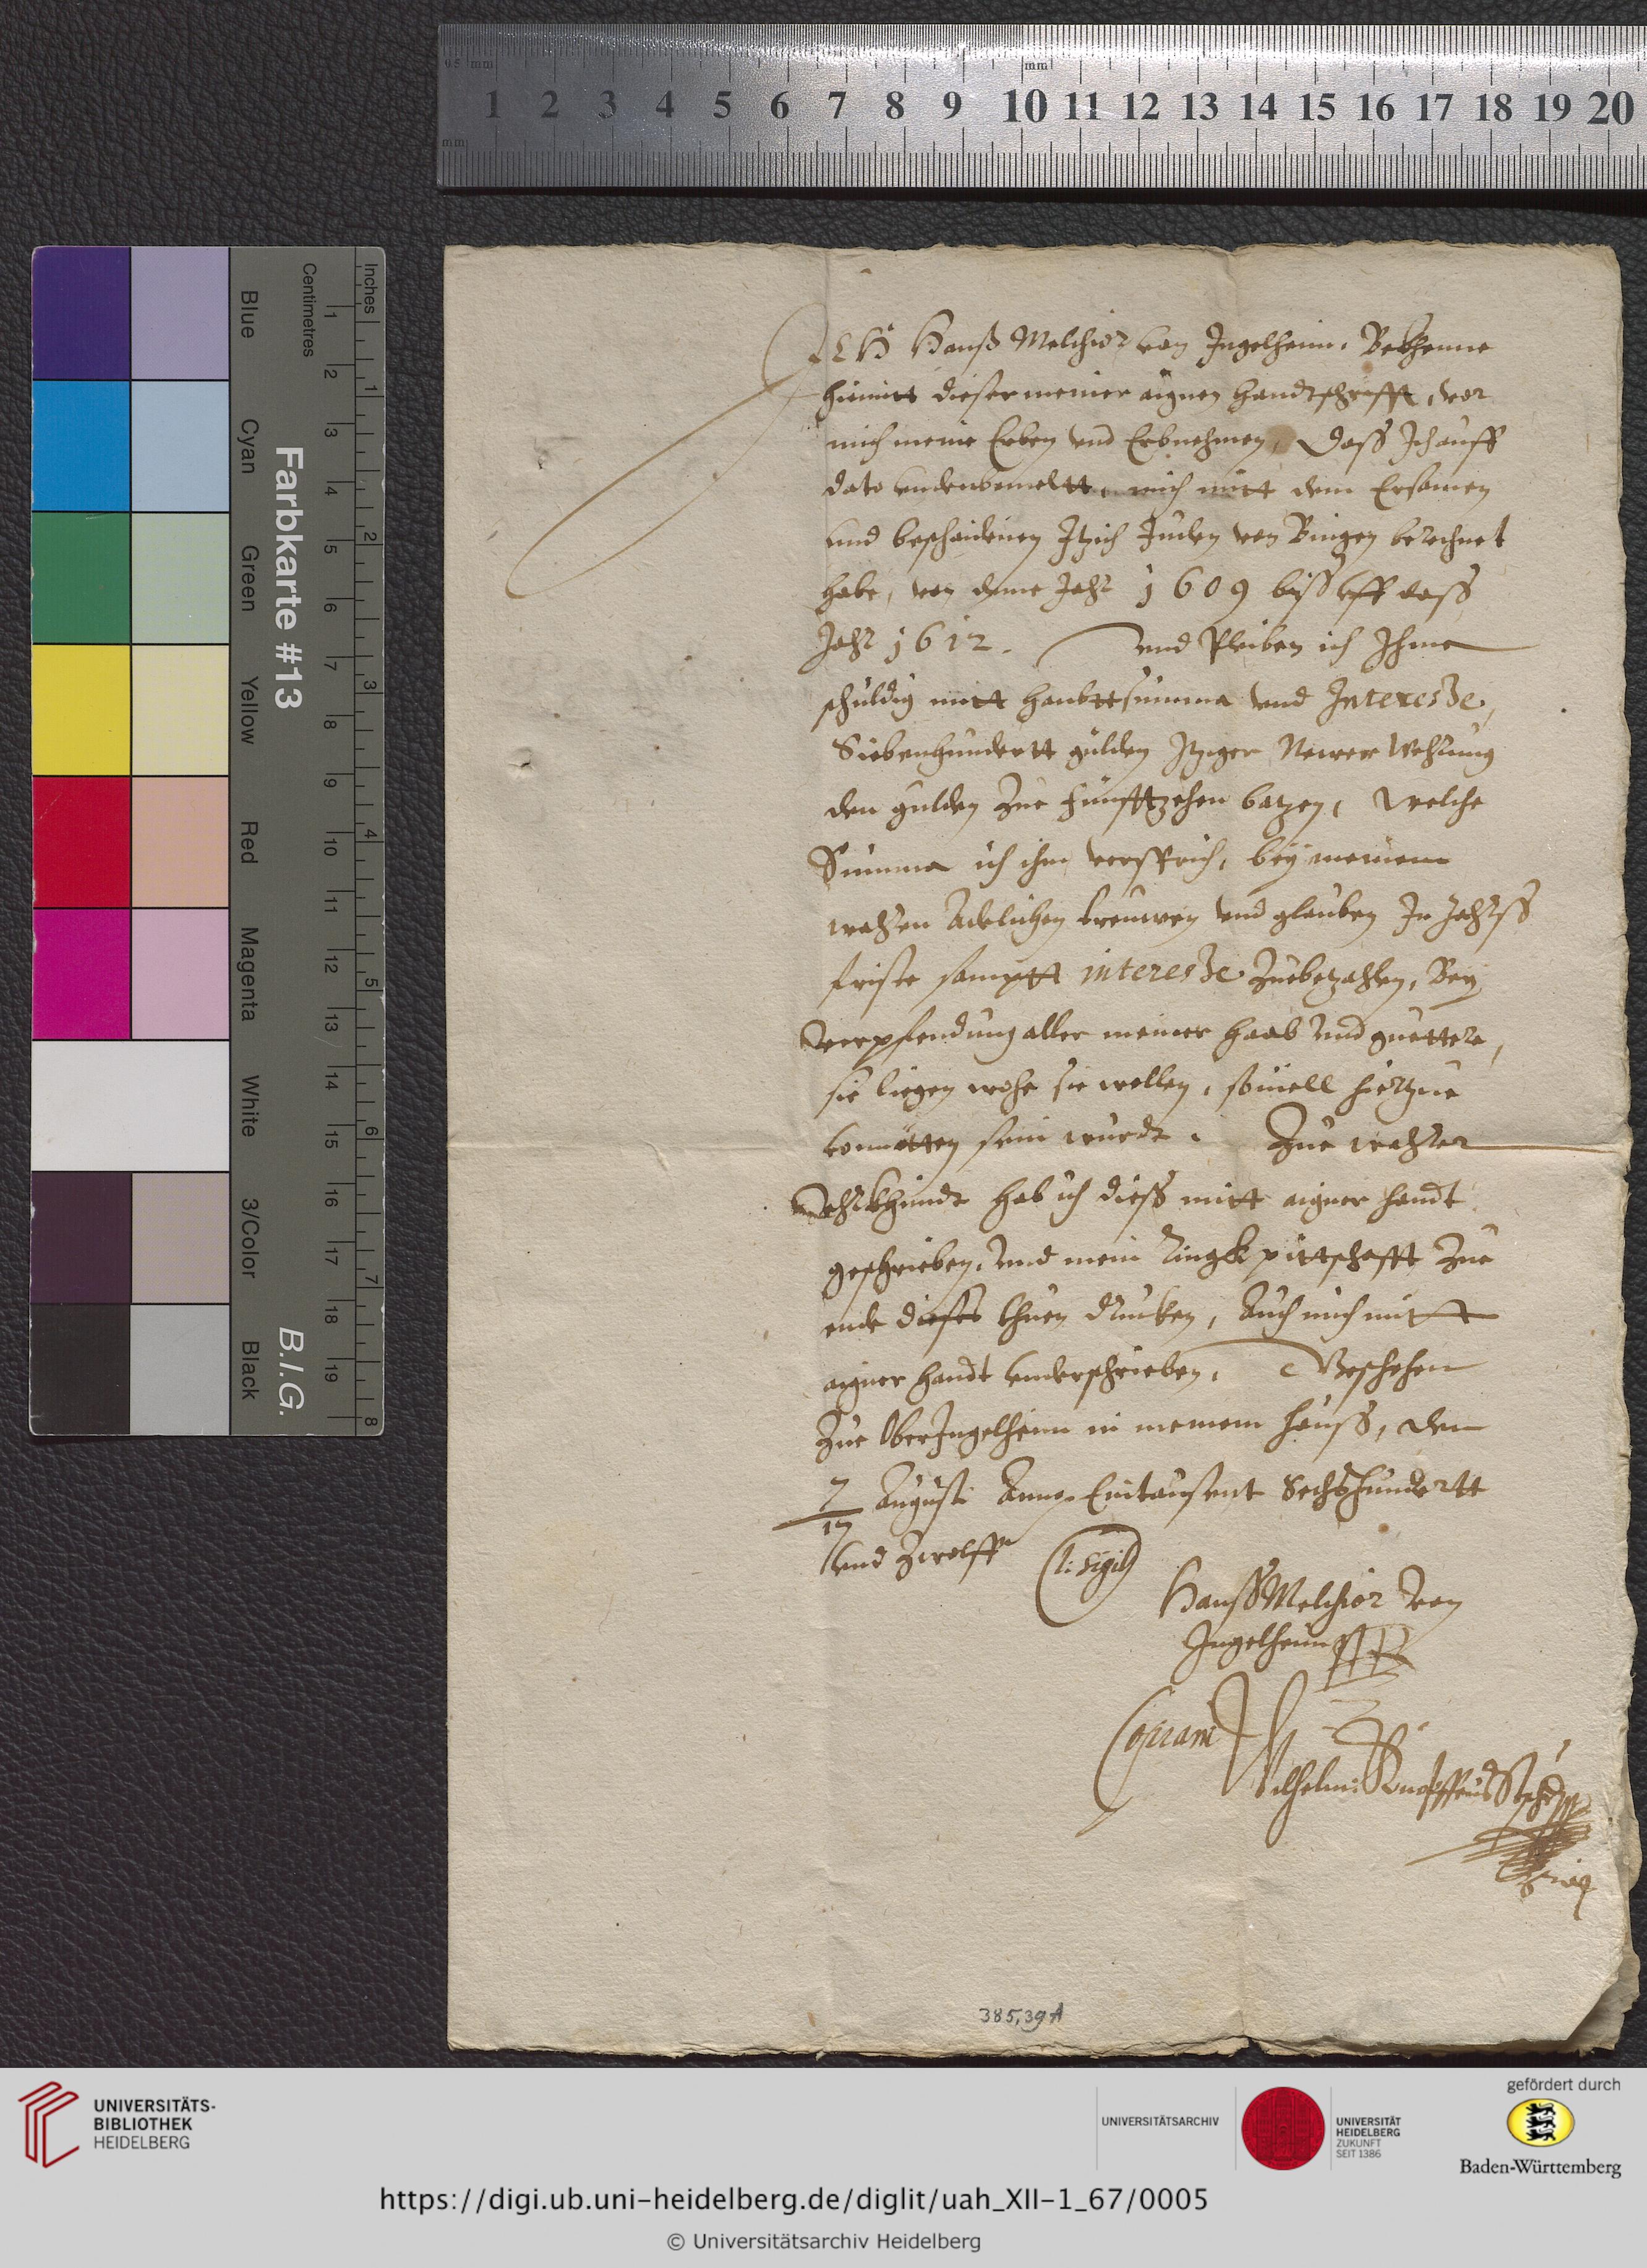 0.5 mm
mm
mm
1 2 3 4 5 6 7 8 9 10 11 12 13 14 15 16 17 18 19 20
Farbkarte #13
B.I.G.
Inches
1 2 3 4 5 6 7 8
Centimetres
1 2 3 4 5 6 7 8 9 10 11 12 13 14 15 16 17 18 19
Blue
Cyan
Green
Yellow
Red
Magenta
White
3/Color
Black
ICH Hanß Melchior von Ingelheim, Bekhenne
hiemitt dieser meiner aignen handtschrifft, vor
mich meine Erben und Erbnehmen, daß Ich auff
dato undenbemeltt, mich mitt dem Ersamen
und beschaidenen Itzich Juden von Bingen berechnet
habe, von deme Jahr 1609 biß uff daß
Jahr 1612. und Pleiben ich Ihme
schuldig mitt haubttsumma und Interesse,
Siebenhundertt gülden Itziger Newer Wehrung
den gulden zue funfftzehen batzen, welche
Summa ich ihm versprich, bey meinem
wahren Adelichen treuwen und glauben In Jahrß
friste samptt interesse zuebetzahlen, Bey
verpfendung aller meiner haab und guettere,
sie liegen wohe sie wollen, soviell hiertzue
vonnötten sein wurdt. Zue wahrer
Uhrkhundt hab ich dieß mitt aigner handt
geschrieben, und mein Ringk pittschafft zue
ende dieses thuen drucken, Auch mich mitt
aigner handt underschrieben, Geschehen
Zue OberIngelheim in meinem hauß, den
7/17 Augusti Anno Eintausent Sechshundertt
und Zwolff
(l: sigil)
Hanß Melchior von
Ingelheim
Copiam
Wilhelm
385,39 A
UNIVERSITÄTS-
BIBLIOTHEK
HEIDELBERG
UNIVERSITÄTSARCHIV
UNIVERSITÄT
HEIDELBERG
ZUKUNFT
SEIT 1386
gefördert durch
Baden-Württemberg
https://digi.ub.uni-heidelberg.de/diglit/uah_XII-1_67/0005
© Universitätsarchiv Heidelberg